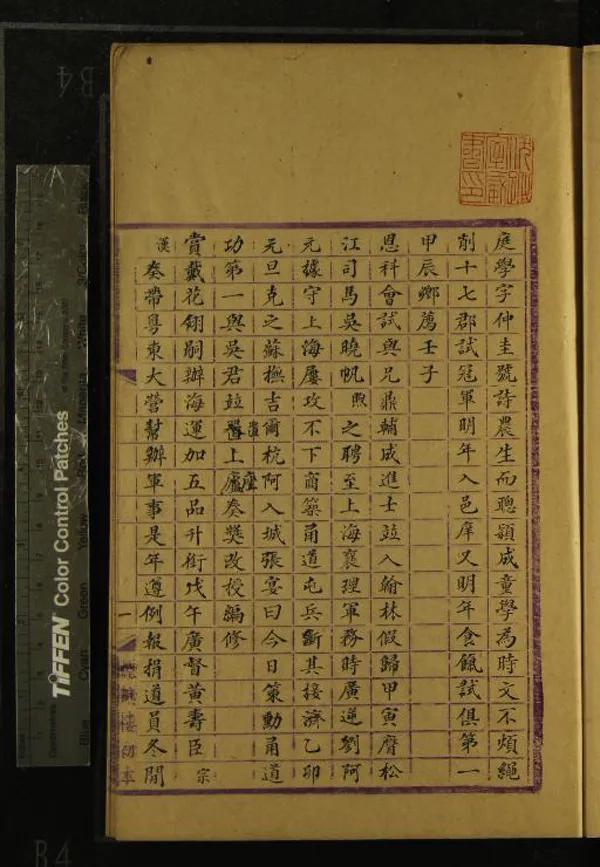 庭學字仲圭號詩農生而聰頴成童學為時文不煩繩
削十七郡試冠軍明年入邑庠又明年食餼試俱第一
甲辰鄉薦壬子
恩科會試與兄鼎輔成進士竝入翰林假歸甲寅膺松
江司馬吳曉帆煦之聘至上海襄理軍務時廣逆劉阿
元據守上海屢攻不下商築甬道屯兵斷其接濟乙卯
元旦克之蘇撫吉爾杭阿入城張宴曰今日策勳甬道
功第一與吳君竝上奏奬改授編修
賞戴花翎嗣辦海運加五品升銜戊午廣督黃壽臣宗
漢奏帶粵東大營幫辦軍事是年遵例報捐道員冬開
一
樓
TIFFEN Color Control Patches
Blue
Cyan
Green
Yellow
Red
Magenta
White
3/Color
Black
B4
B4